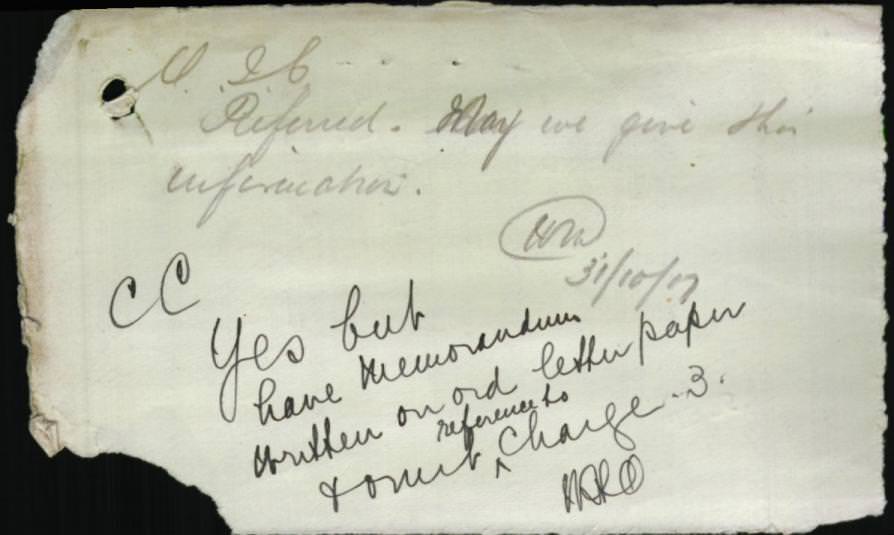 Referred. May we give this
information.
31/10/17
CC
Yes but
have Memorandum
written on ord letter paper
& omit reference to Charge 3.